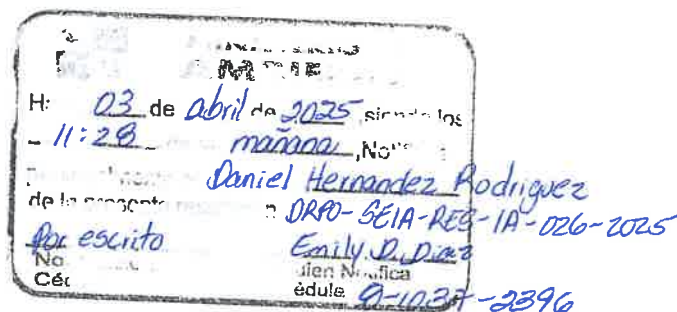 H: 03 de abril de 2025 siendo los
11:28 mañana, No
Daniel Hernandez Rodriguez
de la presente DRPO-SEIA-RES-IA-026-2025
Por escrito Emily D. Diaz
No uien Notifica
Céd édula 9-1037-2396